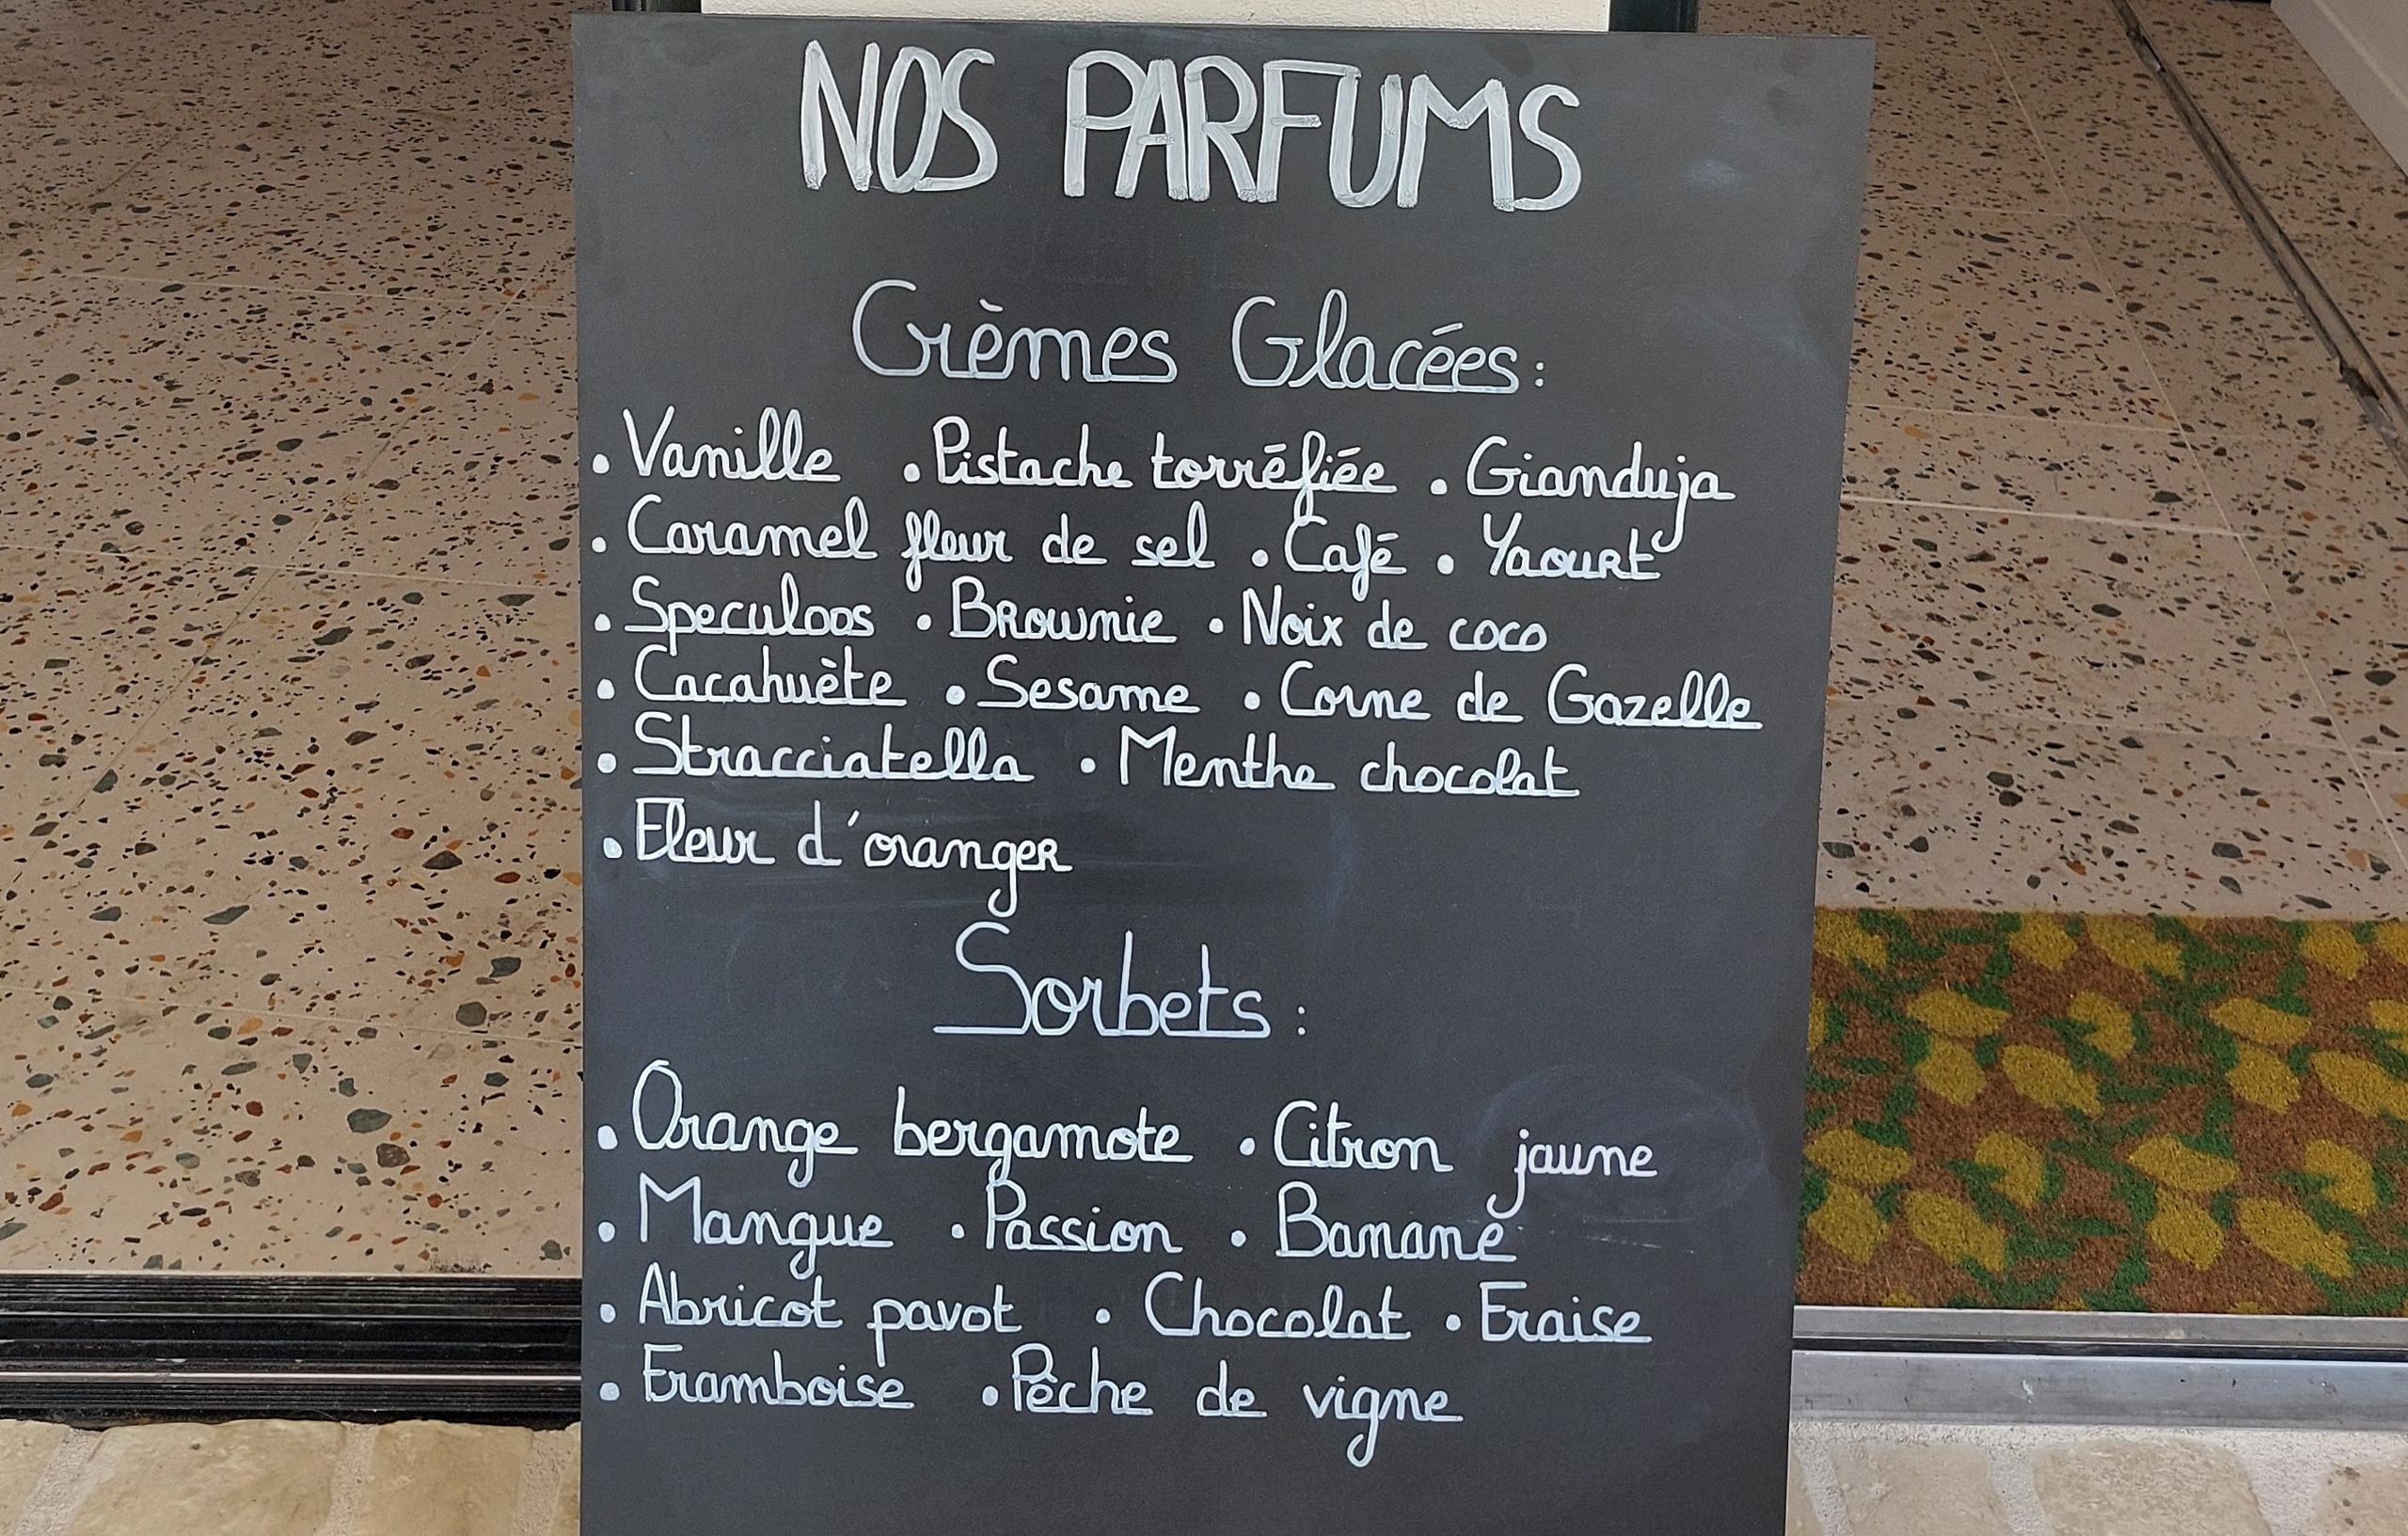 NOS PARFUMS
Crèmes Glacées :
. Vanille . Pistache torréfiée . Gianduja
. Caramel fleur de sel . Café . Yaourt
. Speculoos . Brownie . Noix de coco
. Cacahuète . Sesame . Corne de Gazelle
. Stracciatella . Menthe chocolat
. Fleur d'oranger
Sorbets :
. Orange bergamote . Citron jaune
. Mangue . Passion . Banane
. Abricot pavot . Chocolat . Fraise
. Framboise . Pêche de vigne